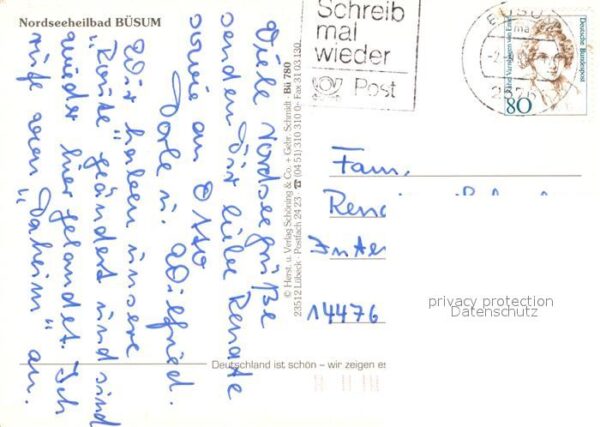 Nordseeheilbad BÜSUM
Viele Nordseegrüße
senden Dir liebe Renate
sowie an Otto
Dorle u. Wilfried.
Wir haben unsere
"Route" geändert und sind
wieder hier gelandet. Ich
rufe von "Daheim" an.
© Herst. u. Verlag Schöning & Co. + Gebr. Schmidt · Bü 780
23512 Lübeck · Postfach 24 23 · ☎ (04 51) 310 31 0 · Fax 31 03 130
Schreib
mal
wieder
Post
BÜSUM
80
Deutsche Bundespost
Rahel Varnhagen von Ense
Fam.
Rena
14476
privacy protection
Datenschutz
Deutschland ist schön – wir zeigen es